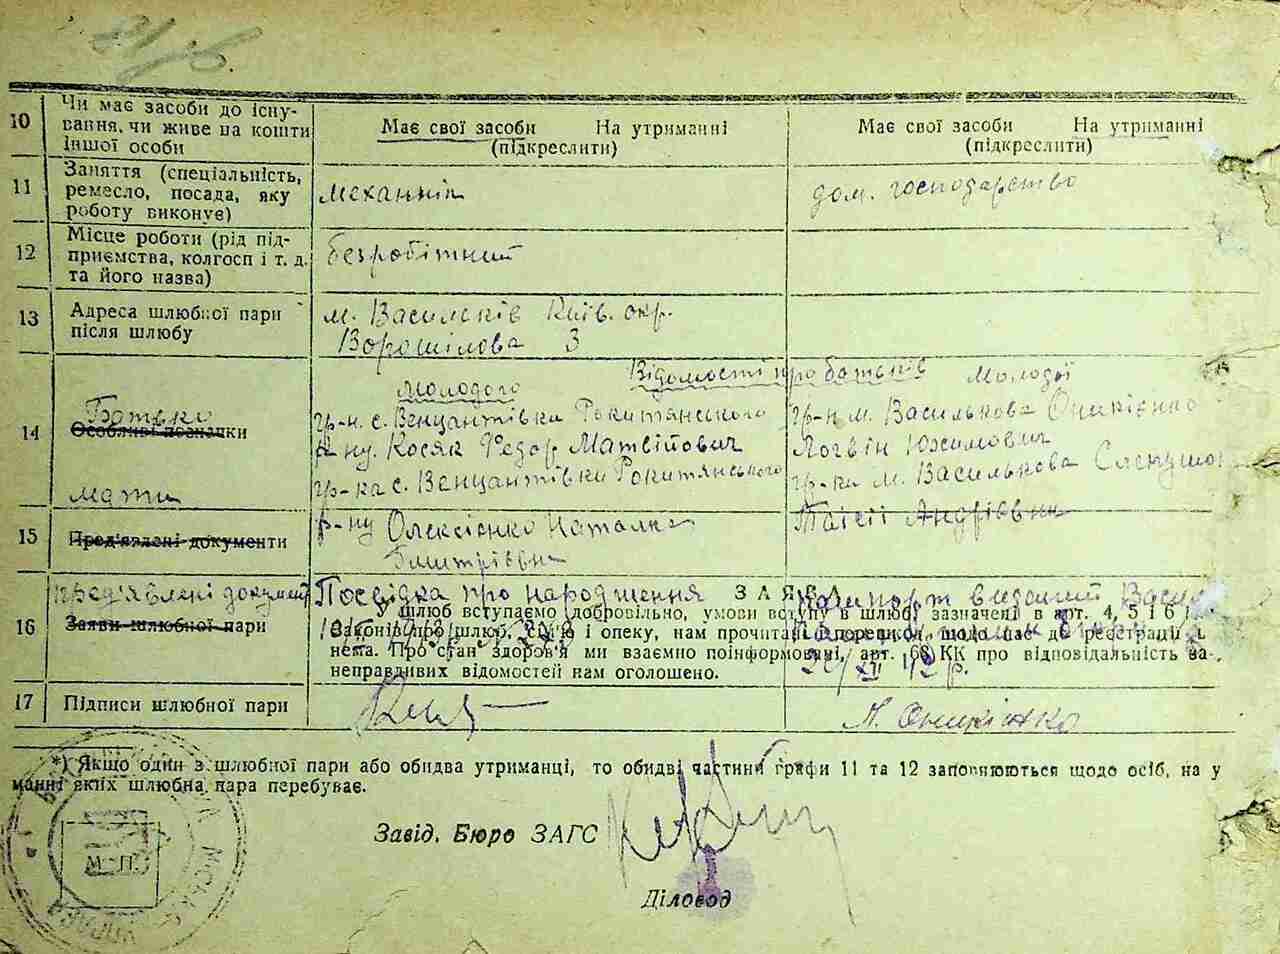 10 Чи має засоби до існу-
вання, чи живе на кошти
іншої особи
Має свої засоби На утриманні
(підкреслити)
Має свої засоби На утриманні
(підкреслити)
11 Заняття (спеціальність,
ремесло, посада, яку
роботу виконує)
механнік
дом. господарство
12 Місце роботи (рід під-
приємства, колгосп і т. д.
та його назва)
безробітний
13 Адреса шлюбної пари
після шлюбу
м. Васильків Київ. окр.
Ворошілова 3
Відомості про батьків
молодого
молодої
14 Батько
Особливі познаки
мати
гр-н. с. Венцантівка Рокитянського
р-ну. Косяк Федор Матвійович
гр-ка с. Венцантівки Рокитянського
гр-н м. Василькова Оникієнко
Логвін Юхимович
гр-ка м. Василькова
15 Пред'явлені документи
р-ну Олексієнко Наталка
Дмитрівна
Таісії Андріївна
16 пред'явлені документ
Заяви шлюбної пари
Посвідка про народження
паспорт виданий Васил
ЗАЯВА
У шлюб вступаємо добровільно, умови вступу в шлюб, зазначені в арт. 4, 5 і 6
Законів про шлюб, сім'ю і опеку, нам прочитані. Перепикод, щодо нас до реєстрації
нема. Про стан здоров'я ми взаємно поінформовані, арт. 68 КК про відповідальність за
неправдивих відомостей нам оголошено.
17 Підписи шлюбної пари
Оникієнко
*) Якщо один з шлюбної пари або обидва утриманці, то обидві частини графи 11 та 12 заповнюються щодо осіб, на у
манні яких шлюбна пара перебуває.
Завід. Бюро ЗАГС
М. П.
Діловод